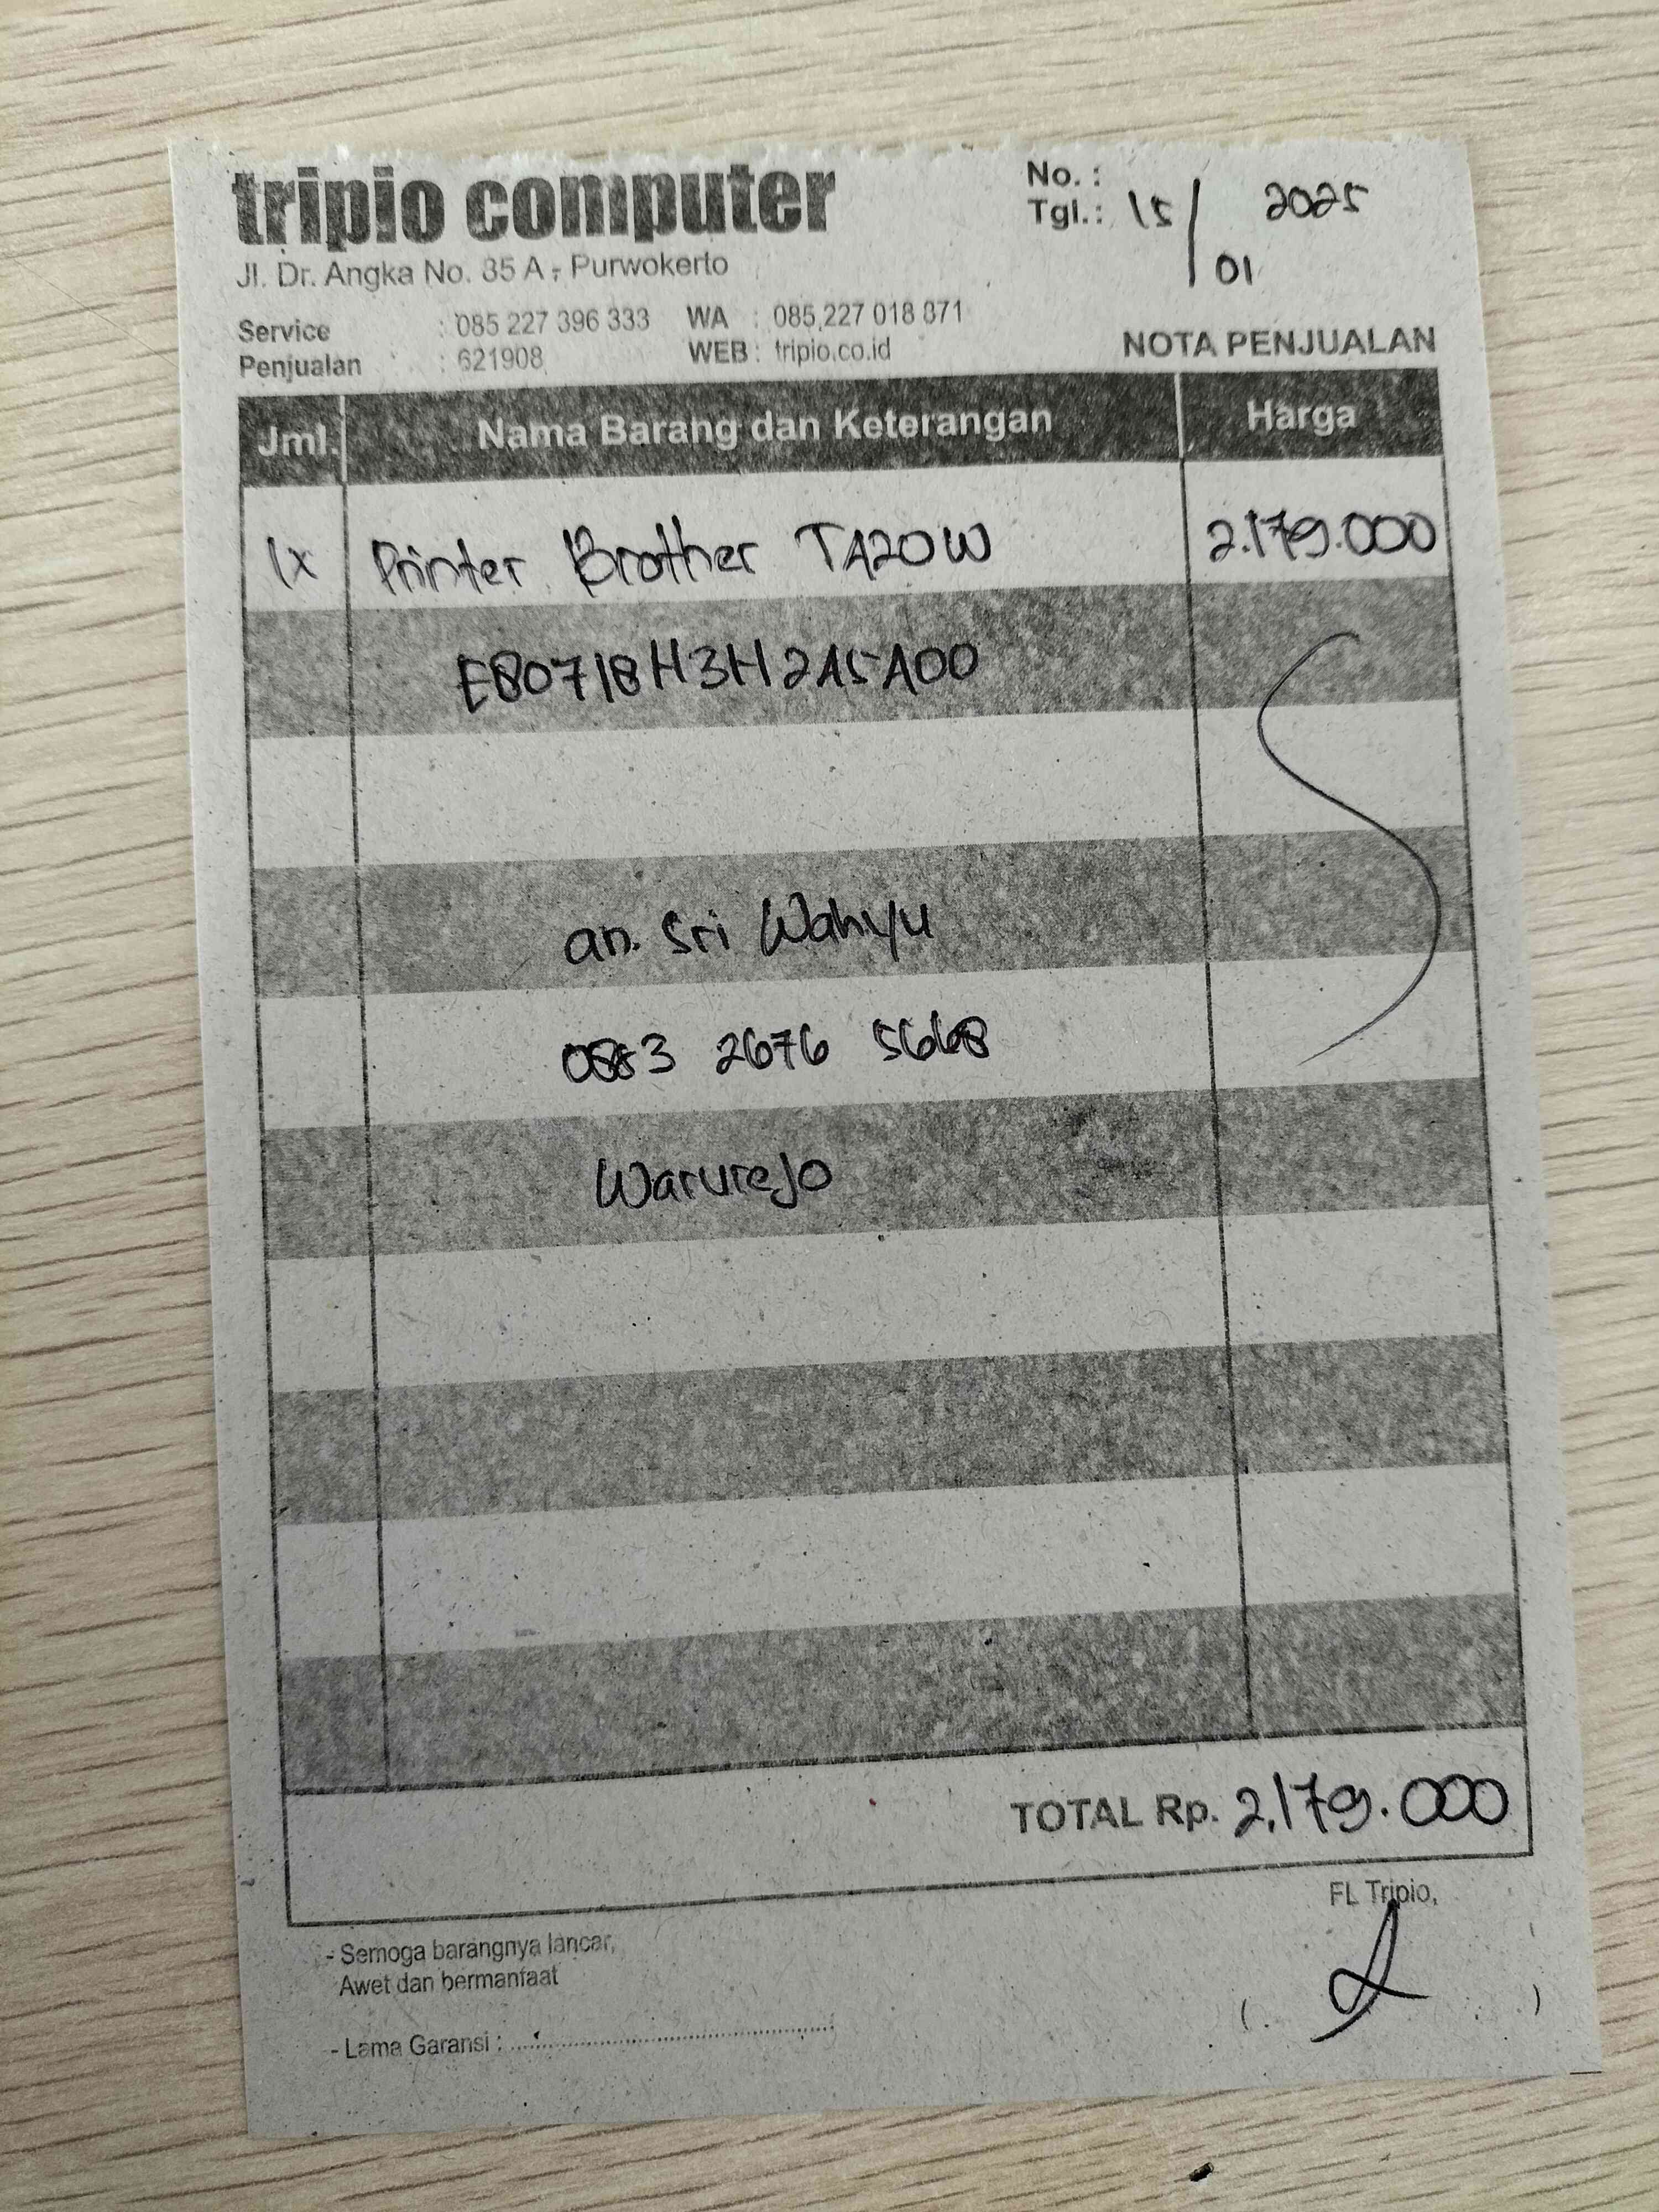 tripio computer
No. :
Tgl.: 15/01 2025
Jl. Dr. Angka No. 35 A - Purwokerto
Service : 085 227 396 333 WA : 085 227 018 871
Penjualan : 621908 WEB : tripio.co.id
NOTA PENJUALAN
Jml. Nama Barang dan Keterangan Harga
1x Printer Brother TA20W 2.179.000
E80718H3H2A5A00
an. Sri Wahyu
0883 2676 5668
Warurejo
TOTAL Rp. 2.179.000
FL Tripio,
- Semoga barangnya lancar,
Awet dan bermanfaat
- Lama Garansi : ........................................
( )